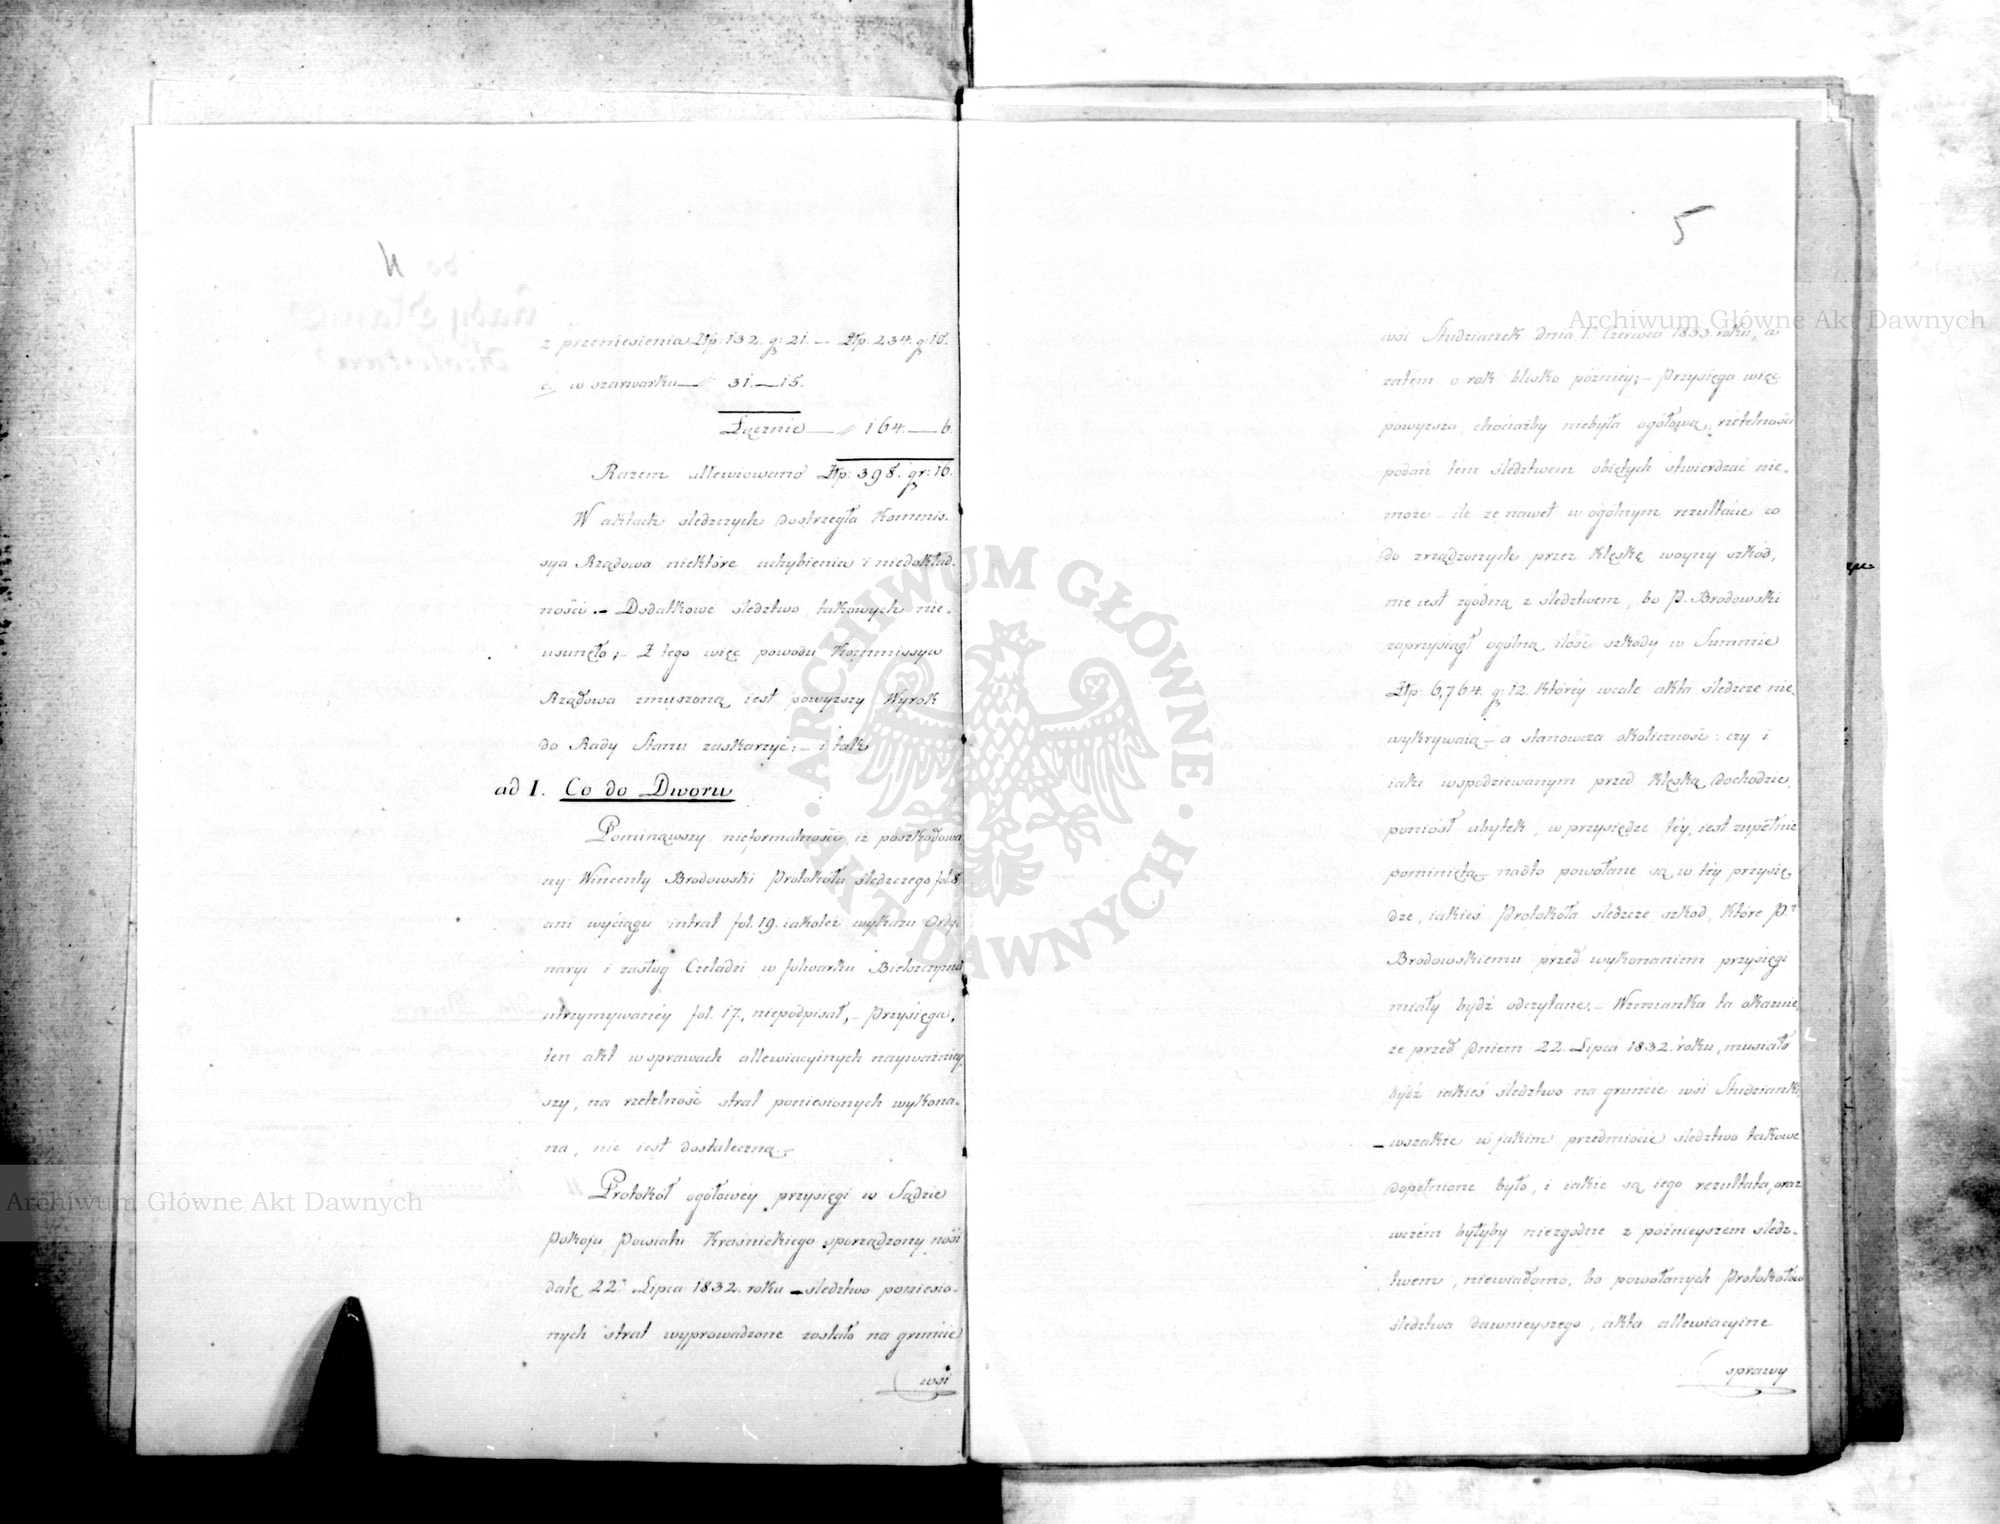 4
z przeniesienia Złp: 132. g: 21. — Złp: 234. g: 10.
c, w szarwarku — „ 31. — 15.
Łącznie — „ 164. — 6.
Razem allewiowano Złp: 398. gr: 16.
W aktach śledczych dostrzegła Kommis-
sya Rządowa niektóre uchybienia i niedokład-
ności. — Dodatkowe śledztwo, takowych nie-
usunęło; — Z tego więc powodu Kommissya
Rządowa zmuszoną iest powyższy Wyrok
do Rady Stanu zaskarzyć: — i tak
ad I. Co do Dworu
Pominąwszy nieformalności, iż poszkodowa
ny Wincenty Brodowski Protokółu śledczego fol. 8.
ani wyciągu intrat fol. 19. iakoteż wykazu Ordy-
naryi i zasług Czeladzi w folwarku Bielszczyzna
utrzymywanéy fol. 17., niepodpisał, — Przysięga,
ten akt w sprawach allewiacyinych nayważniey-
szy, na rzetelność strat poniesionych wykona-
na, nie iest dostateczną. —
Protokół ogółowéy przysięgi w Sądzie
Pokoju Powiatu Kraśnickiego sporządzony nosi
datę 22o Lipca 1832. roku — śledztwo poniesio-
nych strat wyprowadzone zostało na gruncie
wsi
5
wsi Studzianek dnia 1. Czerwca 1833 roku, a
zatém o rok blisko późniéy; — Przysięga więc
powyższa, chociażby niebyła ogółową, rzetelności
podań tém śledztwem obiętych stwierdzać nie-
może — ile że nawet w ogólnym rezultacie co
do zrządzonych przez klęskę woyny szkód,
nie iest zgodną z śledztwem, bo P. Brodowski
zaprzysiągł ogólną ilość szkody w Summie
Złp: 6,764. g: 12. któréy wcale akta śledcze nie-
wykrywaią — a stanowcza okoliczność: czy i
iaki wspodziewanym przed klęską dochodzie,
poniósł ubytek, w przysiędze téy, iest zupełnie
pominiętą — nadto powołane są w téy przysię-
dze, iakieś Protokóła śledcze szkod, które P.
Brodowskiemu przed wykonaniem przysięgi
miały bydź odczytane. — Wzmianka ta okazuie,
że przed dniem 22. Lipca 1832. roku, musiało
bydź iakieś śledztwo na gruncie wsi Studzianki,
— wszakże w jakim przedmiocie śledztwo takowe
dopełnione było, i iakie są iego rezultata, oraz
wczém byłyby niezgodne z późnieyszem śledz-
twem, niewiadomo, bo powołanych Protokółów
śledztwa dawnieyszego, akta allewiacyine
sprawy
ARCHIWUM GŁÓWNE AKT DAWNYCH
Archiwum Główne Akt Dawnych
Archiwum Główne Akt Dawnych